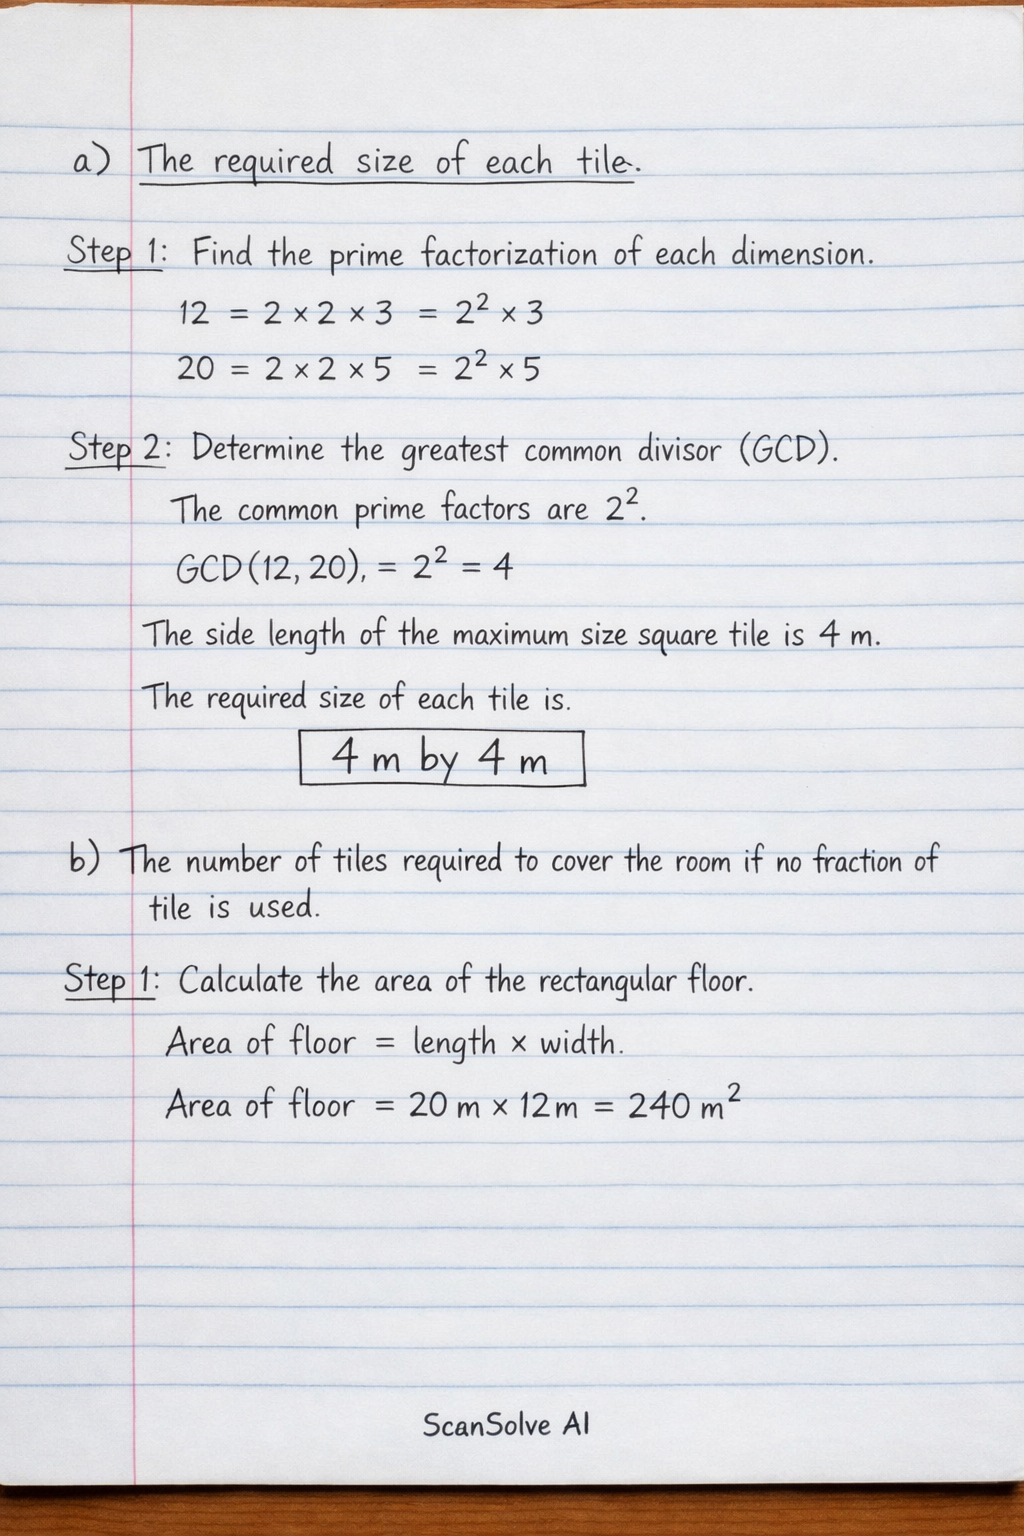 a) The required size of each tile.
Step 1: Find the prime factorization of each dimension.
12 = 2 × 2 × 3 = 2² × 3
20 = 2 × 2 × 5 = 2² × 5
Step 2: Determine the greatest common divisor (GCD).
The common prime factors are 2².
GCD(12, 20), = 2² = 4
The side length of the maximum size square tile is 4 m.
The required size of each tile is.
4 m by 4 m
b) The number of tiles required to cover the room if no fraction of
tile is used.
Step 1: Calculate the area of the rectangular floor.
Area of floor = length × width.
Area of floor = 20 m × 12 m = 240 m²
ScanSolve AI